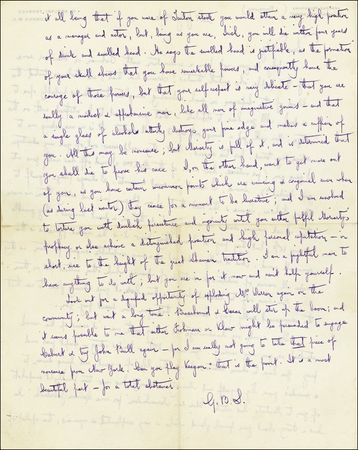 it all being that if you were of Teuton stock you would attain a very high position
as a manager and actor, but, being as you are, Irish, you will die within four years
of drink and swelled head. He says the swelled head is justifiable, as the formation
of your skull shews that you have remarkable powers, and consequently have the
courage of those powers, but that your self-respect is very delicate - that you are
really a modest & affectionate man, like all men of imaginative genius - and that
a single glass of alcohol utterly destroys your fine edge and makes a ruffian of
you. All this may be nonsense; but is full of it, and is determined that
you shall die to prove his case. I, on the other hand, want to get more out
of you, as you have certain uncommon points which are winning & congenial even when
(as during last winter) they cease for a moment to be lucrative; and I am resolved
to torture you with devilish persistence and ingenuity until you either fulfil
prophecy or else achieve a distinguished position and high personal reputation - in
short, rise to the height of the great Shavian tradition. I am a frightful man to
have anything to do with; but you are in for it now and cant help yourself.
Look out for a dignified opportunity of exploding Mrs Warren again on the
community; but wait a long time. Brassbound & Caesar will stir up the boom; and
it seems possible to me that either Frohman or Klaw might be persuaded to engage
& try John Bull again - for I am really not going to take that piece of
nonsense from New York. Can you play Keegan: that is the point. It is a most
beautiful part - for a total abstainer.
G.B.S.